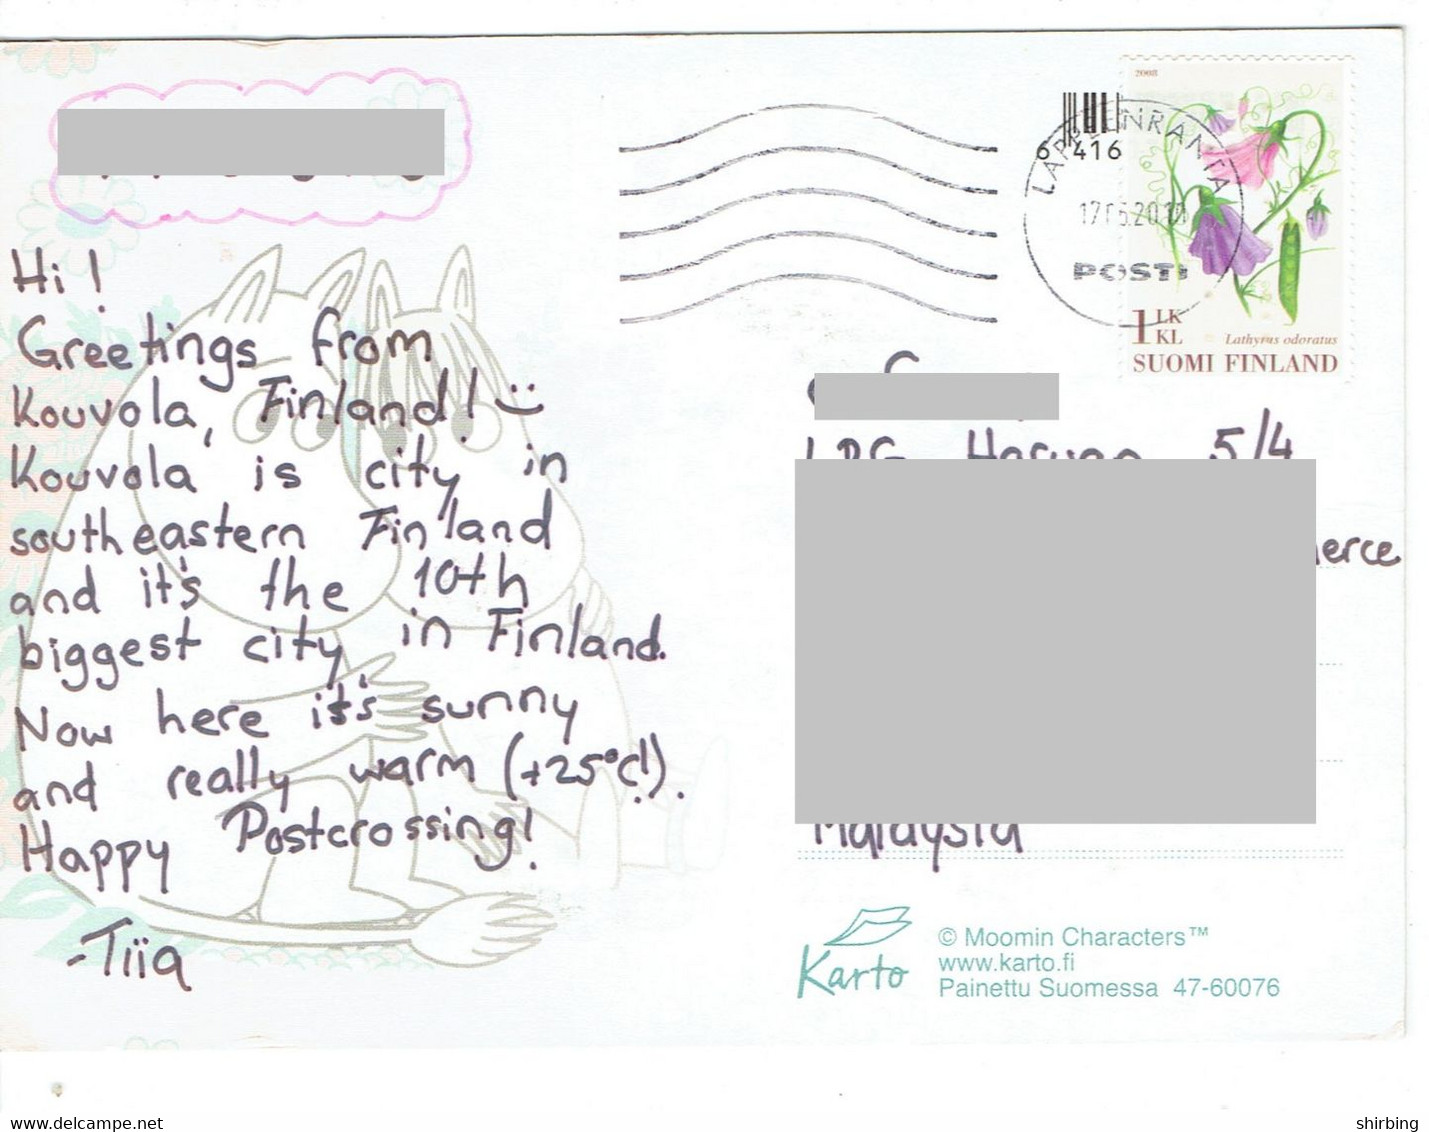 Hi!
Greetings from
Kouvola, Finland! :)
Kouvola is city in
southeastern Finland
and it's the 10th
biggest city in Finland.
Now here it's sunny
and really warm (+25°C!).
Happy Postcrossing!
-Tiia
2008
6 416
LAPPEENRANTA
POSTI
1 LK
KL
Lathyrus odoratus
SUOMI FINLAND
5/4
Malaysia
Karto
© Moomin Characters™
www.karto.fi
Painettu Suomessa 47-60076
www.delcampe.net
shirbing